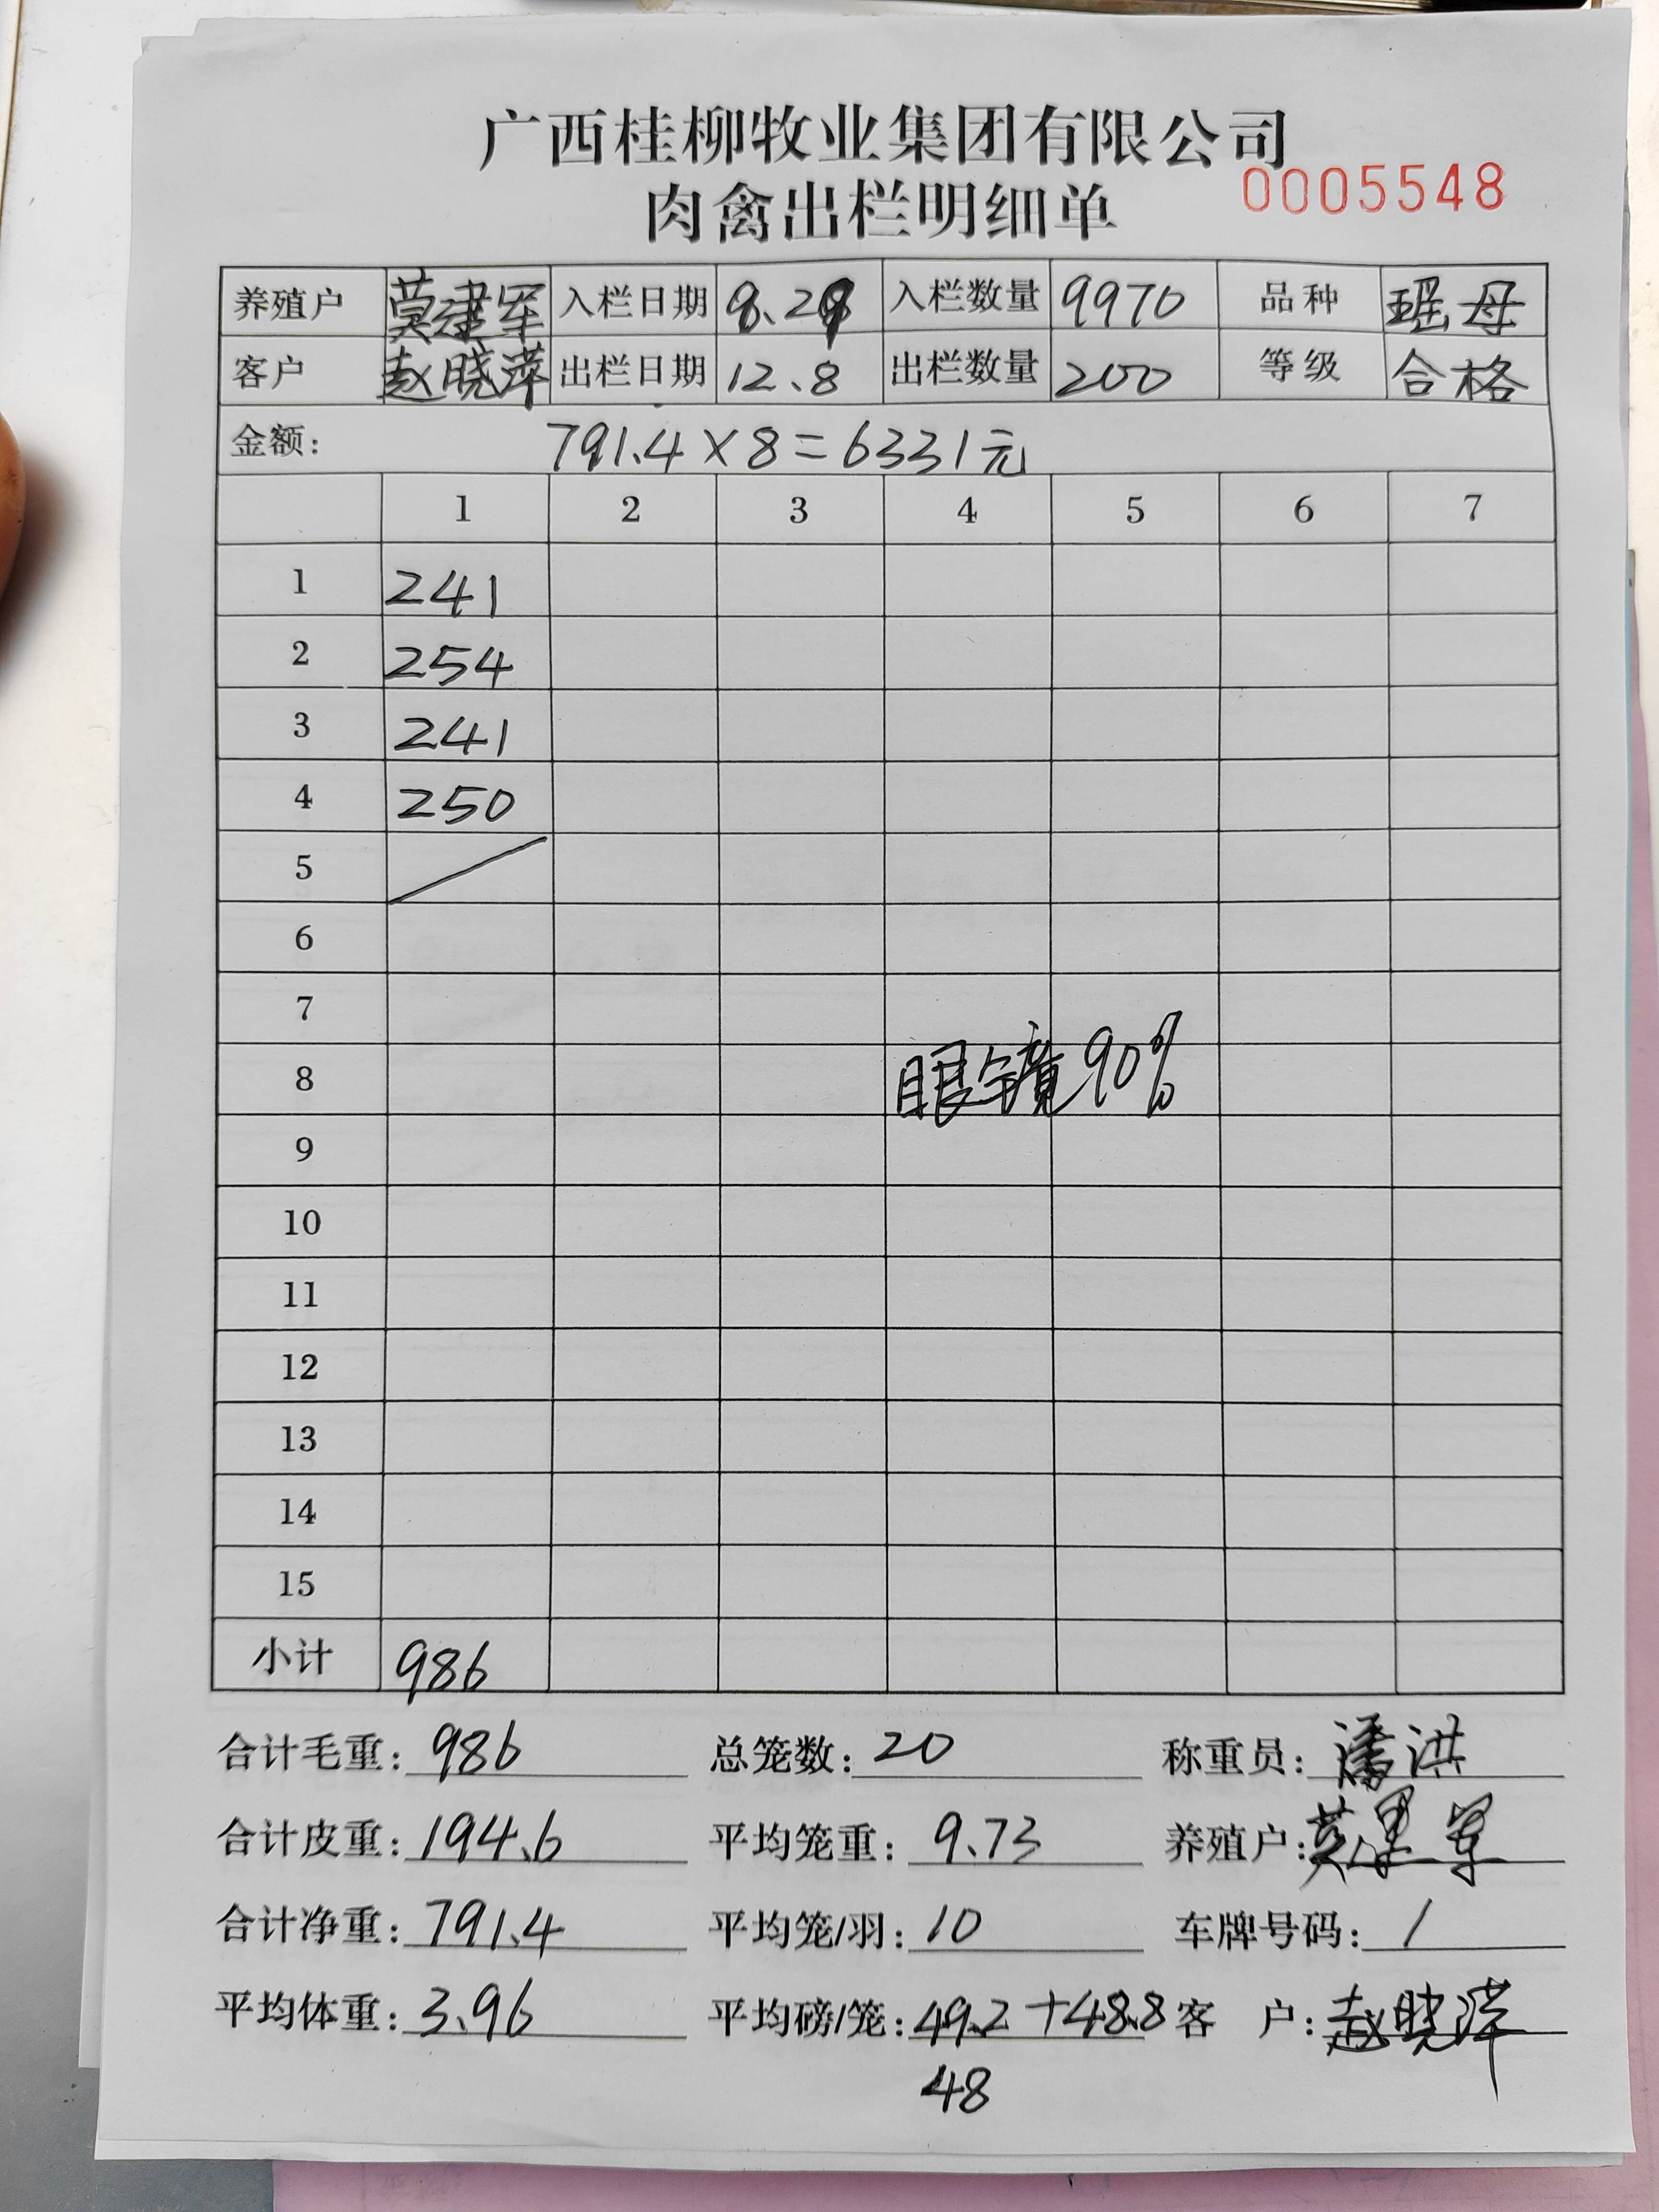 广西桂柳牧业集团有限公司
肉禽出栏明细单 0005548
养殖户 莫建军 入栏日期 入栏数量 9970 品种 瑶母
客户 赵晓萍 出栏日期 12.8 出栏数量 200 等级 合格
金额: 791.4×8=6331元
1 2 3 4 5 6 7
1 241
2 254
3 241
4 250
5
6
7
8 眼镜90%
9
10
11
12
13
14
15
小计 986
合计毛重: 986 总笼数: 20 称重员: 潘洪
合计皮重: 194.6 平均笼重: 9.73 养殖户: 莫建军
合计净重: 791.4 平均笼/羽: 10 车牌号码: /
平均体重: 3.96 平均磅/笼: 49.2+48.8 客户: 赵晓萍
48